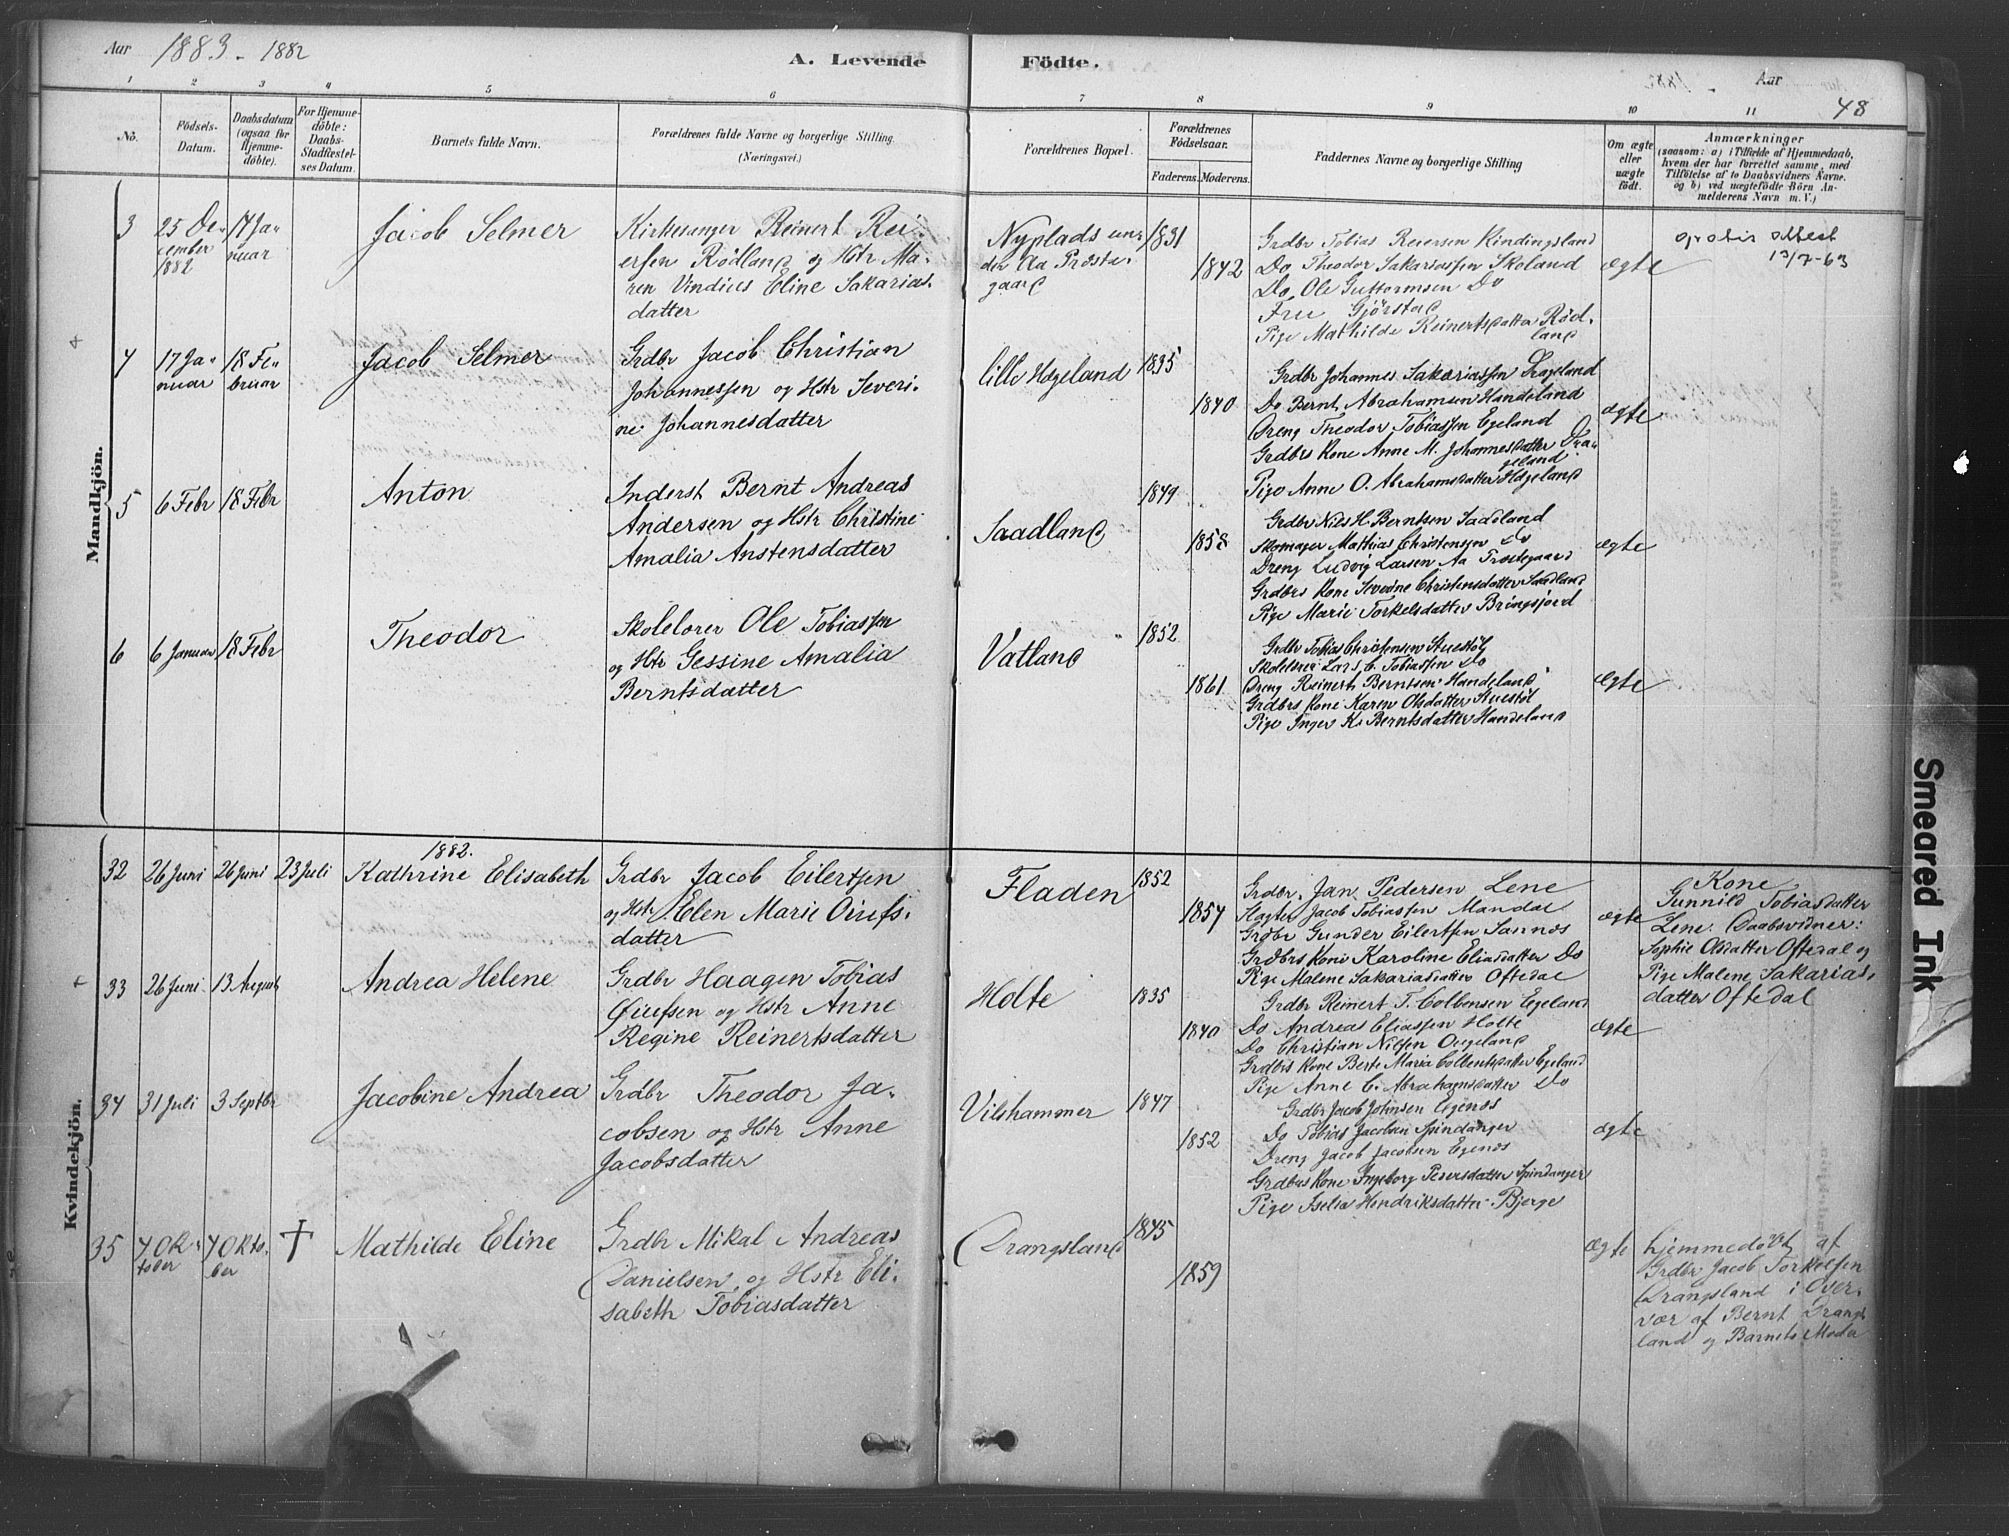 Aar 1883 - 1882
A. Levende
Födte.
Aar
48
1 2 3 4 5 6 7 8 9 10 11
No.
Födsels-
Datum.
Daabsdatum
(ogsaa for
Hjemme-
döbte).
For Hjemme-
döbte:
Daabs-
Stadfæstel-
ses Datum.
Barnets fulde Navn.
Forældrenes fulde Navne og borgerlige Stilling.
(Næringsvei.)
Forældrenes Bopæl.
Forældrenes
Födselsaar.
Faderens. Moderens.
Faddernes Navne og borgerlige Stilling
Om ægte
eller
uægte
födt.
Anmærkninger
(saasom: a) i Tilfælde af Hjemmedaab,
hvem der har forrettet samme, med
Tilföielse af to Daabsvidners Navne.
og b) ved uægtefödte Börn An-
melderens Navn m. V.)
Mandkjön.
3
25 De-
cember
1882
17 Ja-
nuar
Jacob Selmer
Kirkesanger Reinert Rei-
ersen Rödland og Hstr Ma-
ren Vindies Eline Sakarias-
datter
Nyplads un-
der Aa Præste-
gaard
1831
1842
Grdbr Tobias Reiersen Kindingsland
Do Theodor Sakariassen Skoland
Do Ole Guttormsen Do
Frue Gjörstad
Pige Mathilde Reinertsdatter Röd-
land
ægte
gratis attest
13/7-63
4
17 Ja-
nuar
18 Fe-
bruar
Jacob Selmer
Grdbr Jacob Christian
Johannessen og Hstr Severi-
ne Johannesdatter
lille Høgeland
1835
1840
Grdbr Johannes Sakariassen Drageland
Do Bernt Abrahamsen Handeland
Dreng Theodor Tobiassen Egeland
Grdbrs Kone Anne M. Johannesdatter Dra-
geland
Pige Anne O. Abrahamsdatter Høgeland
ægte
5
6 Febr
18 Febr
Anton
Inderst Bernt Andreas
Andersen og Hstr Christine
Amalia Anstensdatter
Saadland
1849
1858
Grdbr Nils H. Berntsen Saadland
Skomager Mathias Christensen Do
Dreng Ludvig Larsen Aa Præstegaard
Grdbrs Kone Severine Christensdatter Saadland
Pige Marie Torkelsdatter Bringsjord
ægte
6
6 Januar
18 Febr
Theodor
Skolelærer Ole Tobiassen
og Hstr Gessine Amalia
Berntsdatter
Vatland
1852
1861
Grdbr Tobias Christensen Stuestöl
Skolelærer Lars C. Tobiassen Do
Dreng Reinert Berntsen Handeland
Grdbrs Kone Karen Olsdatter Stuestöl
Pige Inger K. Berntsdatter Handeland
ægte
Kvindekjön.
1882.
32
26 Juni
26 Juni
23 Juli
Kathrine Elisabeth
Grdbr Jacob Eilertsen
og Hstr Elen Marie Oiufs-
datter
Fladen
1852
1857
Grdbr Jan Pedersen Lene
Slagter Jacob Tobiassen Mandal
Grdbr Gunder Eilertsen Sannes
Grdbrs Kone Karoline Eliasdatter Do
Pige Malene Sakariasdatter Oftedal
ægte
Kone
Gunnild Tobiasdatter
Lene. Daabsvidner:
Sophie Olsdatter Oftedal og
Pige Malene Sakarias-
datter Oftedal
33
26 Juni
13 August
Andrea Helene
Grdbr Haagen Tobias
Øiufsen og Hstr Anne
Regine Reinertsdatter
Holte
1835
1840
Grdbr Reinert T. Colbensen Egeland
Do Andreas Eliassen Holte
Do Christian Nilsen Opgeland
Grdbrs Kone Berte Maria Colbentsdatter Egeland
Pige Anne C. Abrahamsdatter Do
ægte
34
31 Juli
3 Septbr
Jacobine Andrea
Grdbr Theodor Ja-
cobsen og Hstr Anne
Jacobsdatter
Vilshammer
1847
1852
Grdbr Jacob Johnsen Egenes
Do Tobias Jacobsen Spindanger
Dreng Jacob Jacobsen Egenes
Grdbrs Kone Ingeborg Petersdatter Spindanger
Pige Iselia Hendriksdatter Bjerge
ægte
35
7 Ok-
tober
7 Okto-
ber
†
Mathilde Eline
Grdbr Mikal Andreas
Danielsen og Hstr Eli-
sabeth Tobiasdatter
Drangsland
1845
1859
ægte
hjemmedöbt af
Grdbr Jacob Torkelsen
Drangsland i Over-
vær af Bernt Drangs-
land og Barnets Moder
Smeared Ink